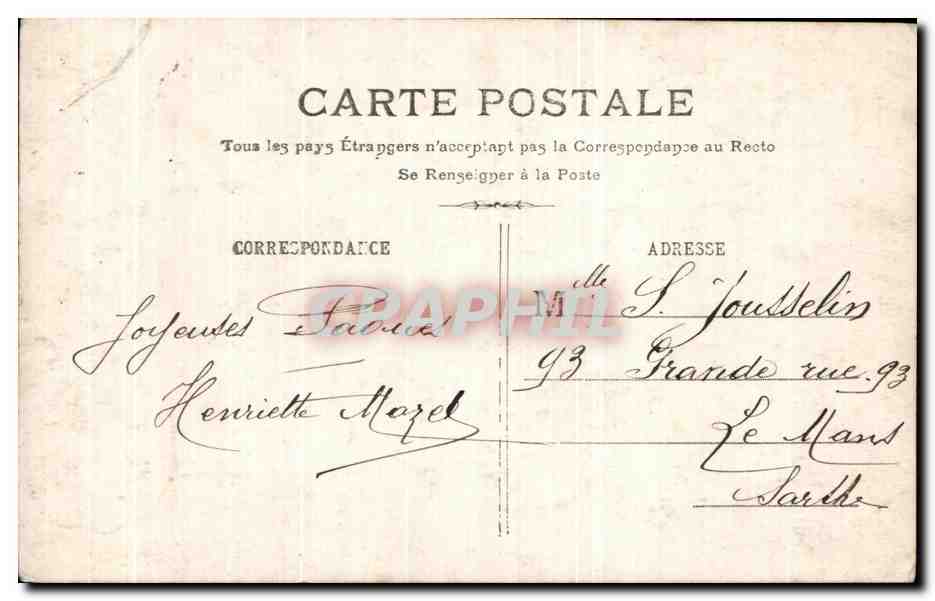 CARTE POSTALE
Tous les pays Étrangers n'acceptant pas la Correspondance au Recto
Se Renseigner à la Poste
CORRESPONDANCE
Joyeuses Paques
Henriette Mazel
ADRESSE
Mlle S. Jousselin
93 Grande rue. 93
Le Mans
Sarthe
CPAPHIL